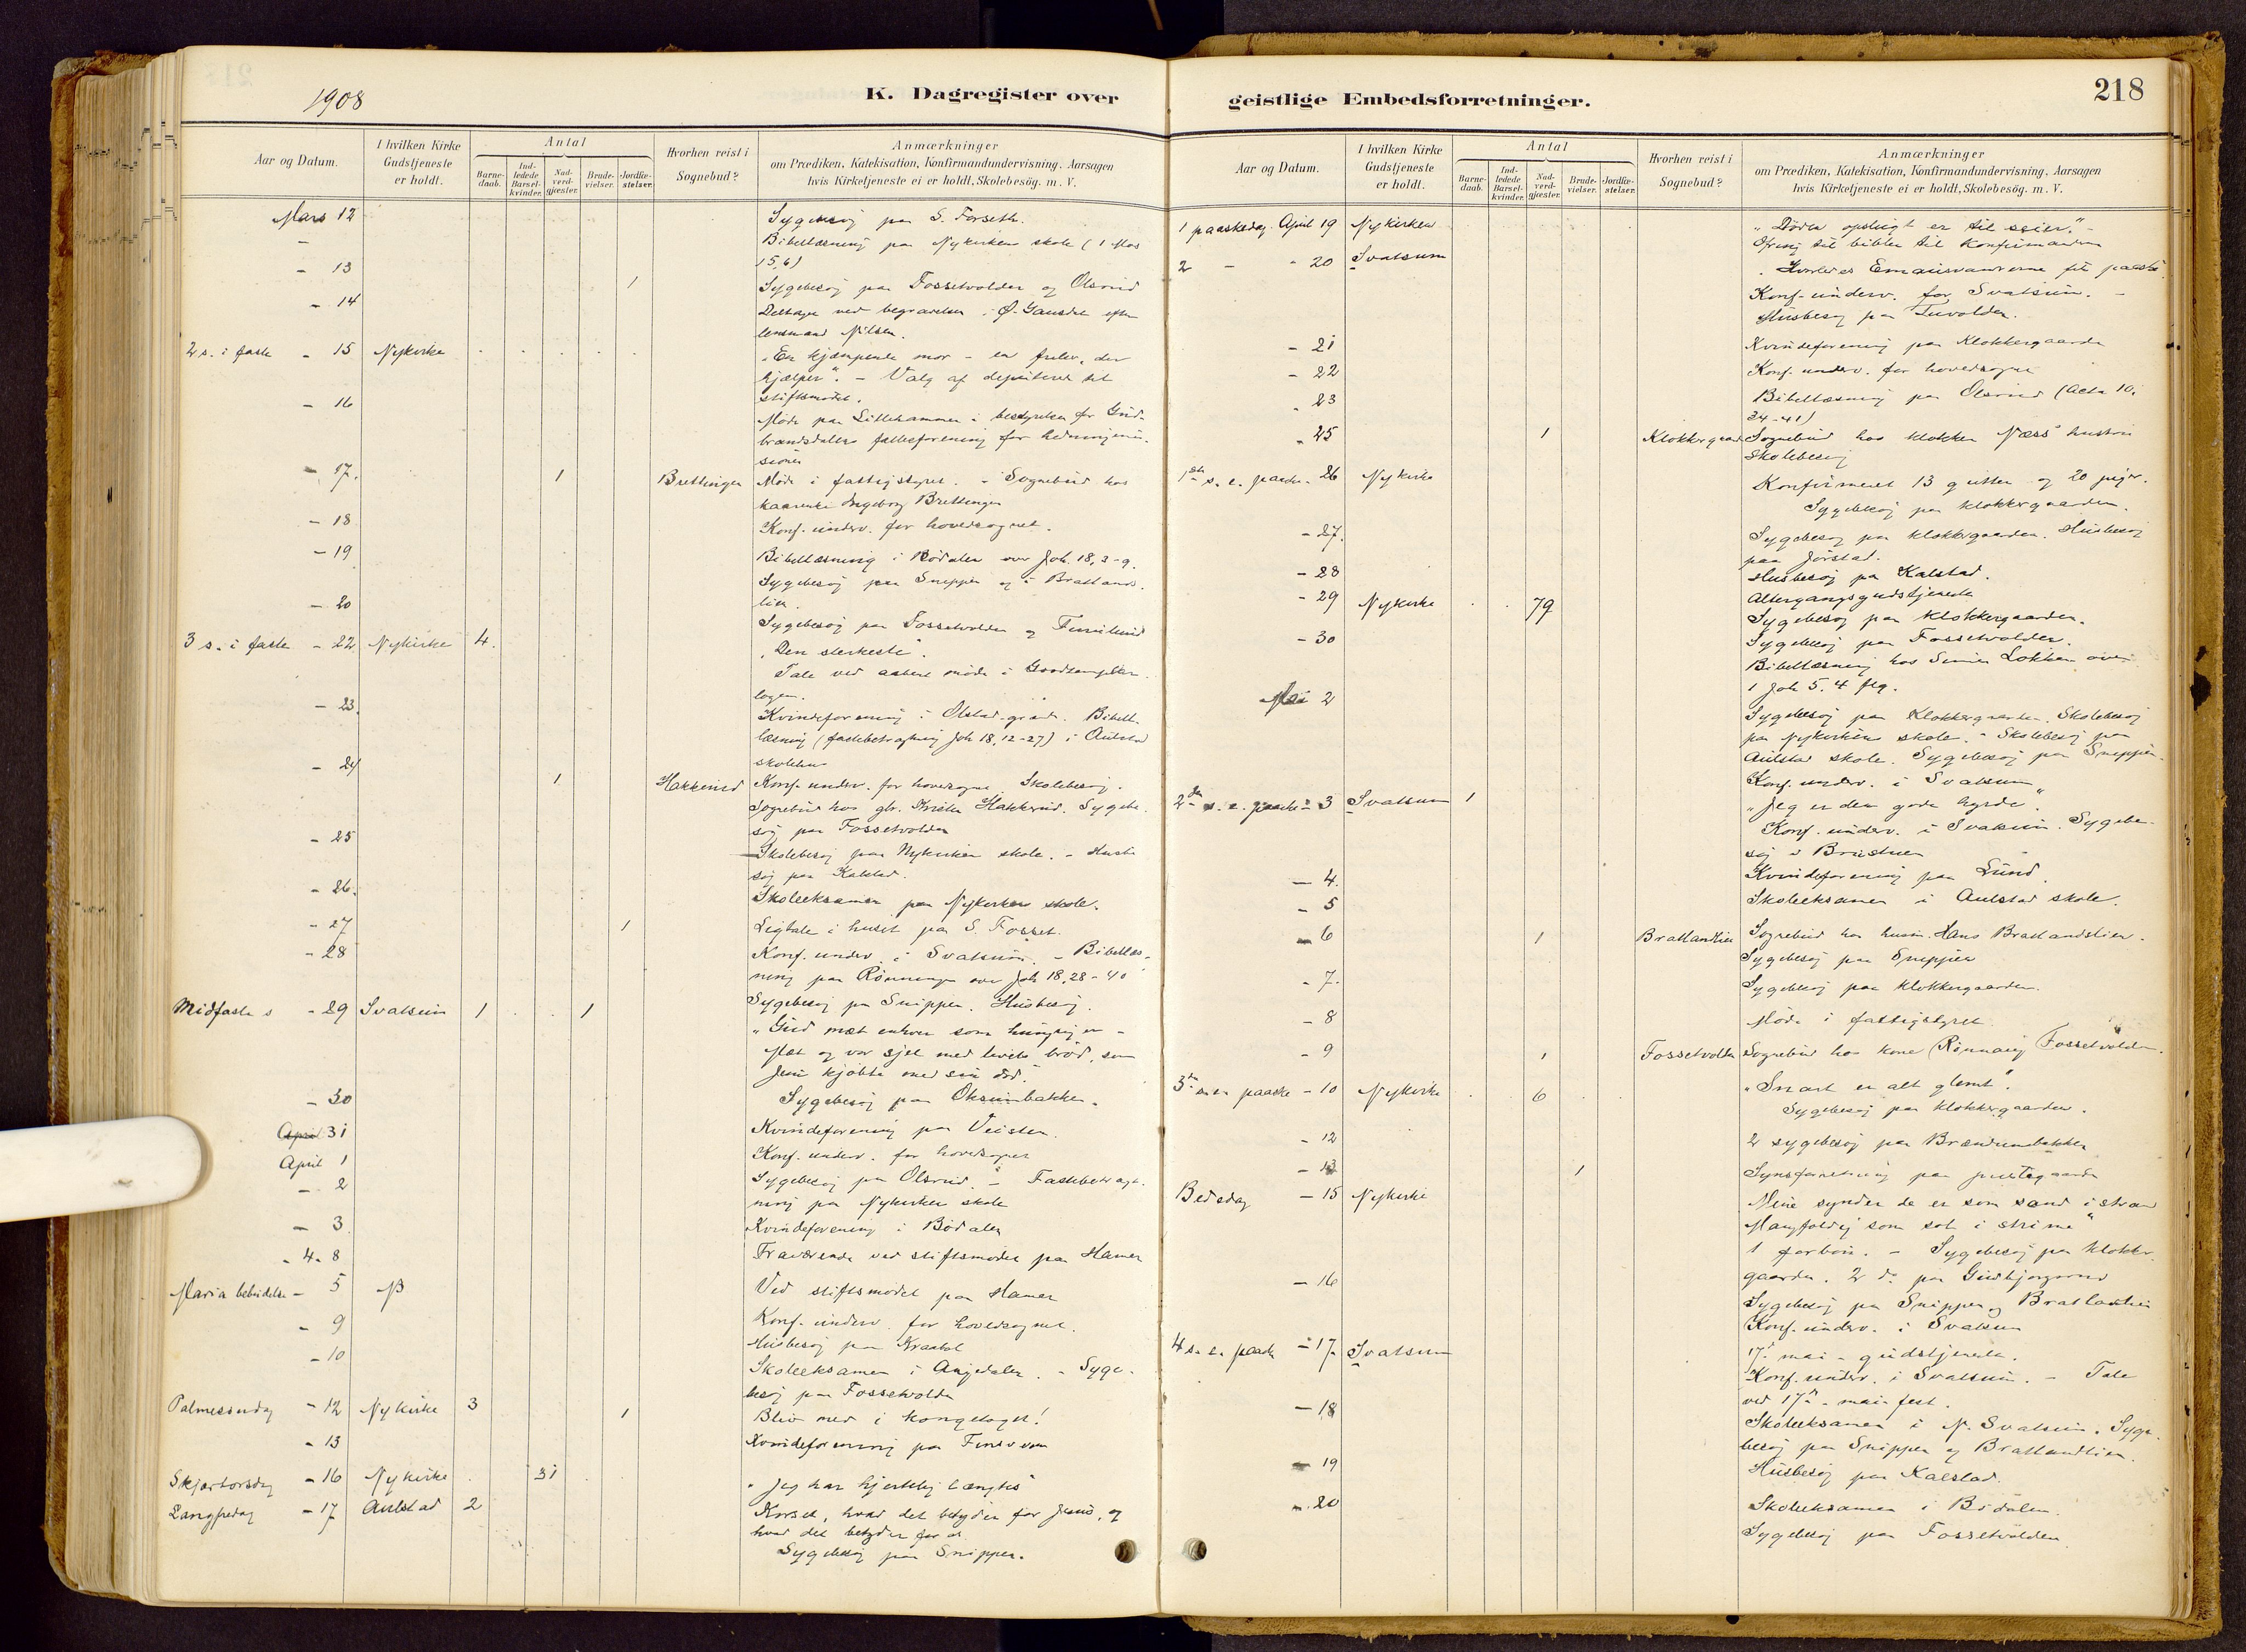 1908
K. Dagregister over
Aar og Datum.
I hvilken Kirke Gudstjeneste er holdt.
Antal
Barne-daab.
Ind-ledede Barsel-kvinder.
Nad-verd-gjæster.
Brude-vielser.
Jordfæ-stelser.
Hvorhen reist i Sognebud?
Anmærkninger
om Prædiken, Katekisation, Konfirmandundervisning, Aarsagen
hvis Kirketjeneste ei er holdt, Skolebesög. m. V.
Mars 12 Sygebesøg paa S. Forseth.
Bibellæsning paa Nykirken skole (1 Mos
15,6)
- 13 1 Sygebesøg paa Fossetvolden og Olsrud
- 14 Deltagen ved begravelsen i Ø. Gausdal efter
lensmand Nilsen.
2 s. i faste - 15 Nykirke "En kjæmpende mor - en frelser, der
hjælper". - Valg af deputeret til
stiftsmødet.
- 16 Møde paa Lillehammer i bestyrelsen for Gud-
brandsdalens fællesforening for hedningemis-
sionen
- 17. 1 Brettingen Møde i fattigstyret. - Sognebud hos
Ingeborg Brettingen
- 18 Konf. underv. for hovedsognet.
- 19 Bibellæsning i Bødalen over Joh. 18, 3-9.
Sygebesøg paa Snippen og i Bratlands-
lien.
- 20 Sygebesøg paa Fossetvolden og
3 s. i faste - 22 Nykirke 4. "Den sterkeste".
Tale ved aabent møde i Goodtemplar-
logen.
- 23. Kvindeforening i Olstad-grd. Bibel-
læsning (fastebetragtning Joh 18, 12-27) i Aulstad
skolehus
- 24 1 Hakkerud Konf. underv. for hovedsognet. Skolebesøg.
Sognebud hos Hakkerud. Sygebe-
søg paa Fossetvolden
- 25 Skolebesøg paa Nykirken skole. - Husbe-
søg paa Kalstad.
- 26. Skoleeksamen paa Nykirken skole.
- 27 1 Ligtale i huset paa S. Fosset.
- 28 Konf. underv. i Svatsum. - Bibellæs-
ning paa Rønningen over Joh 18, 28-40
Sygebesøg paa Snippen. Husbesøg.
Midfaste s - 29 Svatsum 1 1 "Gud mæt enhver som hungrig er -
Mæt og vor sjel med livets brød, som
Jesu kjøbte med sin død".
- 30 Sygebesøg paa Oksumbakken.
April 31 Kvindeforening paa Veisten.
April 1 Konf. underv. for hovedsognet
- 2 Sygebesøg paa Olsrud. - Fastebetragt-
ning paa Nykirken skole
- 3 Kvindeforening i Bødalen
- 4-8 Fraværende ved stiftsmødet paa Hamar
Maria bebudelse - 5 Ved stiftsmødet paa Hamar
- 9 Konf. underv. for hovedsognet.
Husbesøg paa Kraabøl
- 10 Skoleeksamen i Augedalen. - Syge-
besøg paa Fossetvolden
Palmesøndag - 12 Nykirke 3 1 Bliv med i kongetoget!
- 13 Kvindeforening paa
Skjærtorsdag - 16 Nykirke 31 "Jeg har hjertelig længtes"
Langfredag - 17 Aulstad 2 Korset, hvad det betyder for Jesus, og
hvad det betyder for os.
Sygebesøg paa Snippen.
geistlige Embedsforretninger.
218
Aar og Datum.
I hvilken Kirke Gudstjeneste er holdt.
Antal
Barne-daab.
Ind-ledede Barsel-kvinder.
Nad-verd-gjæster.
Brude-vielser.
Jordfæ-stelser.
Hvorhen reist i Sognebud?
Anmærkninger
om Prædiken, Katekisation, Konfirmandundervisning, Aarsagen
hvis Kirketjeneste ei er holdt, Skolebesög. m. V.
1 paaskedag April 19 Nykirken "Døden opslugt er til seier." -
Ofring til bibler til konfirmander
2 - - 20 Svatsum Hvorledes Emausvandrerne fik paaske
Konf.-underv. for Svatsum. -
Husbesøg paa Tuvolden.
- 21 Kvindeforening paa Klokkergaarden
- 22 Konf. underv. for hovedsognet
- 23 Bibellæsning paa Olsrud (Acta 10,
34-41)
- 25 1 Klokkergaard Sognebud hos klokker Næss' hustru
Skolebesøg
1ste s. e. paaske - 26 Nykirke Konfirmeret 13 gutter og 20 piger.
Sygebesøg paa klokkergaarden.
- 27. Sygebesøg paa klokkergaarden. Husbesøg
paa Jørstad.
- 28 Husbesøg paa Kalstad.
- 29 Nykirke 79 Altergangsgudstjeneste
Sygebesøg paa klokkergaarden.
- 30 Sygebesøg paa Fossetvolden.
Bibellæsning hos Løkken over
1 Joh 5. 4 flg.
Mai 2 Sygebesøg paa Klokkergaarden. Skolebesøg
paa Nykirken skole. - Skolebesøg paa
Aulstad skole. Sygebesøg paa Snippen.
Konf. underv. i Svatsum
2den s. e. paaske - 3 Svatsum 1 "Jeg er den gode hyrde".
Konf. underv. i Svatsum. Sygebe-
søg i
- 4. Kvindeforening paa Lund.
- 5 Skoleeksamen i Aulstad skole.
- 6 1 Bratlandlien Sognebud hos husm. Hans Bratlandslien.
Sygebesøg paa Snippen
- 7. Sygebesøg paa klokkergaarden.
- 8 Møde i fattigstyret
- 9 1 Fossetvolden Sognebud hos kone Rønnaug Fossetvolden.
3die s. e. paaske - 10 Nykirke 6 "Snart er alt glemt".
Sygebesøg paa klokkergaarden.
- 12 2 sygebesøg paa
- 13 1 Synsforretning paa prestegaarden
Bededag - 15 Nykirke Mine synder de er som sand i strand
Mangfoldig som sot i strime"
1 forbøn. - Sygebesøg paa klokker-
gaarden. 2 do paa
- 16 Sygebesøg paa Snippen og Bratlandlien
Konf. underv. i Svatsum
4 s. e. paaske - 17. Svatsum 17. mai - gudstjeneste.
Konf. underv. i Svatsum. - Tale
ved 17. mai-fest.
- 18 Skoleeksamen i N. Svatsum. Syge-
besøg paa Snippen og Bratlandlien.
- 19 Husbesøg paa Kalstad.
- 20 Skoleeksamen i Bødalen.
Sygebesøg paa Fossetvolden